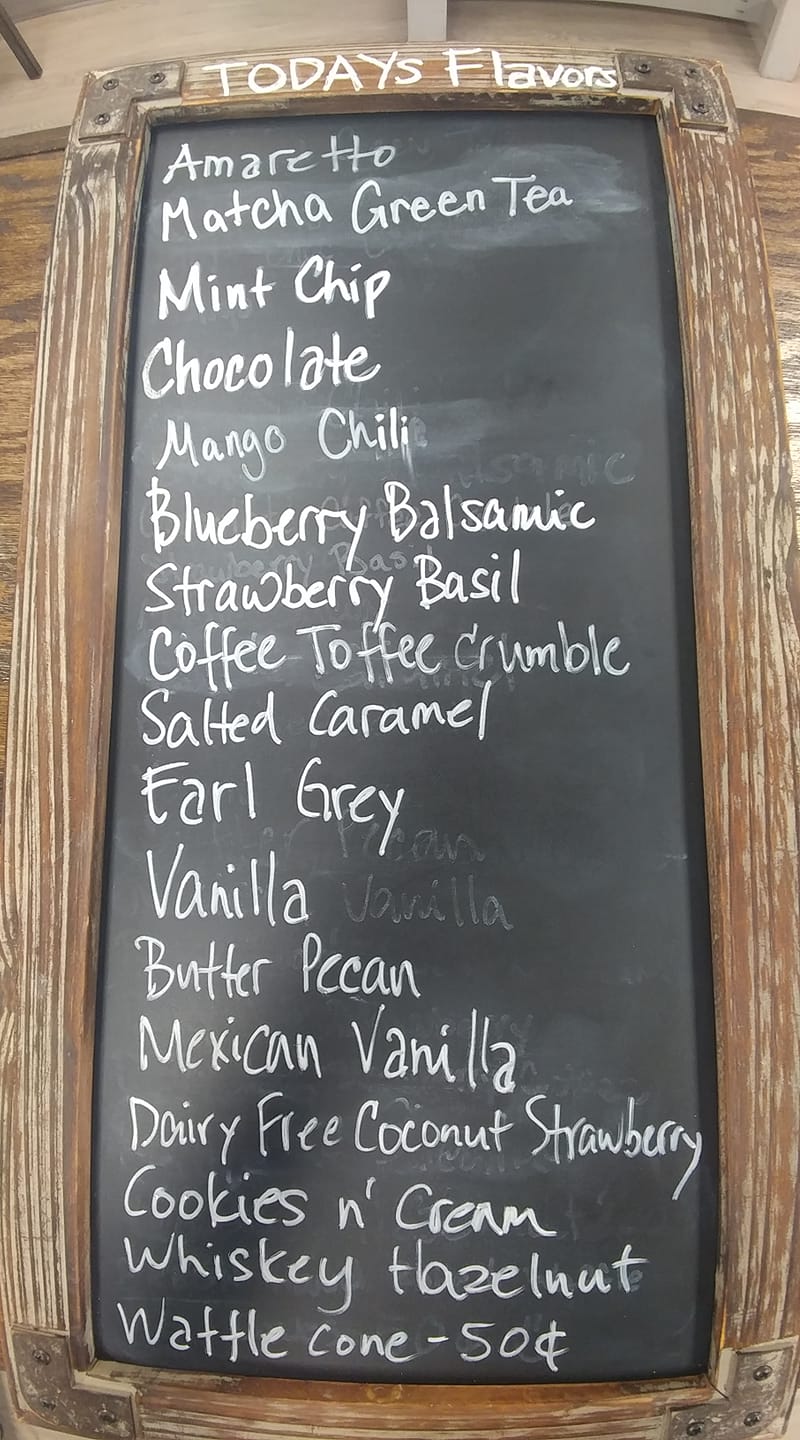 TODAYS Flavors
Amaretto
Matcha Green Tea
Mint Chip
Chocolate
Mango Chili
Blueberry Balsamic
Strawberry Basil
Coffee Toffee Crumble
Salted Caramel
Earl Grey
Vanilla
Butter Pecan
Mexican Vanilla
Dairy Free Coconut Strawberry
Cookies n' Cream
Whiskey Hazelnut
Waffle cone - 50¢